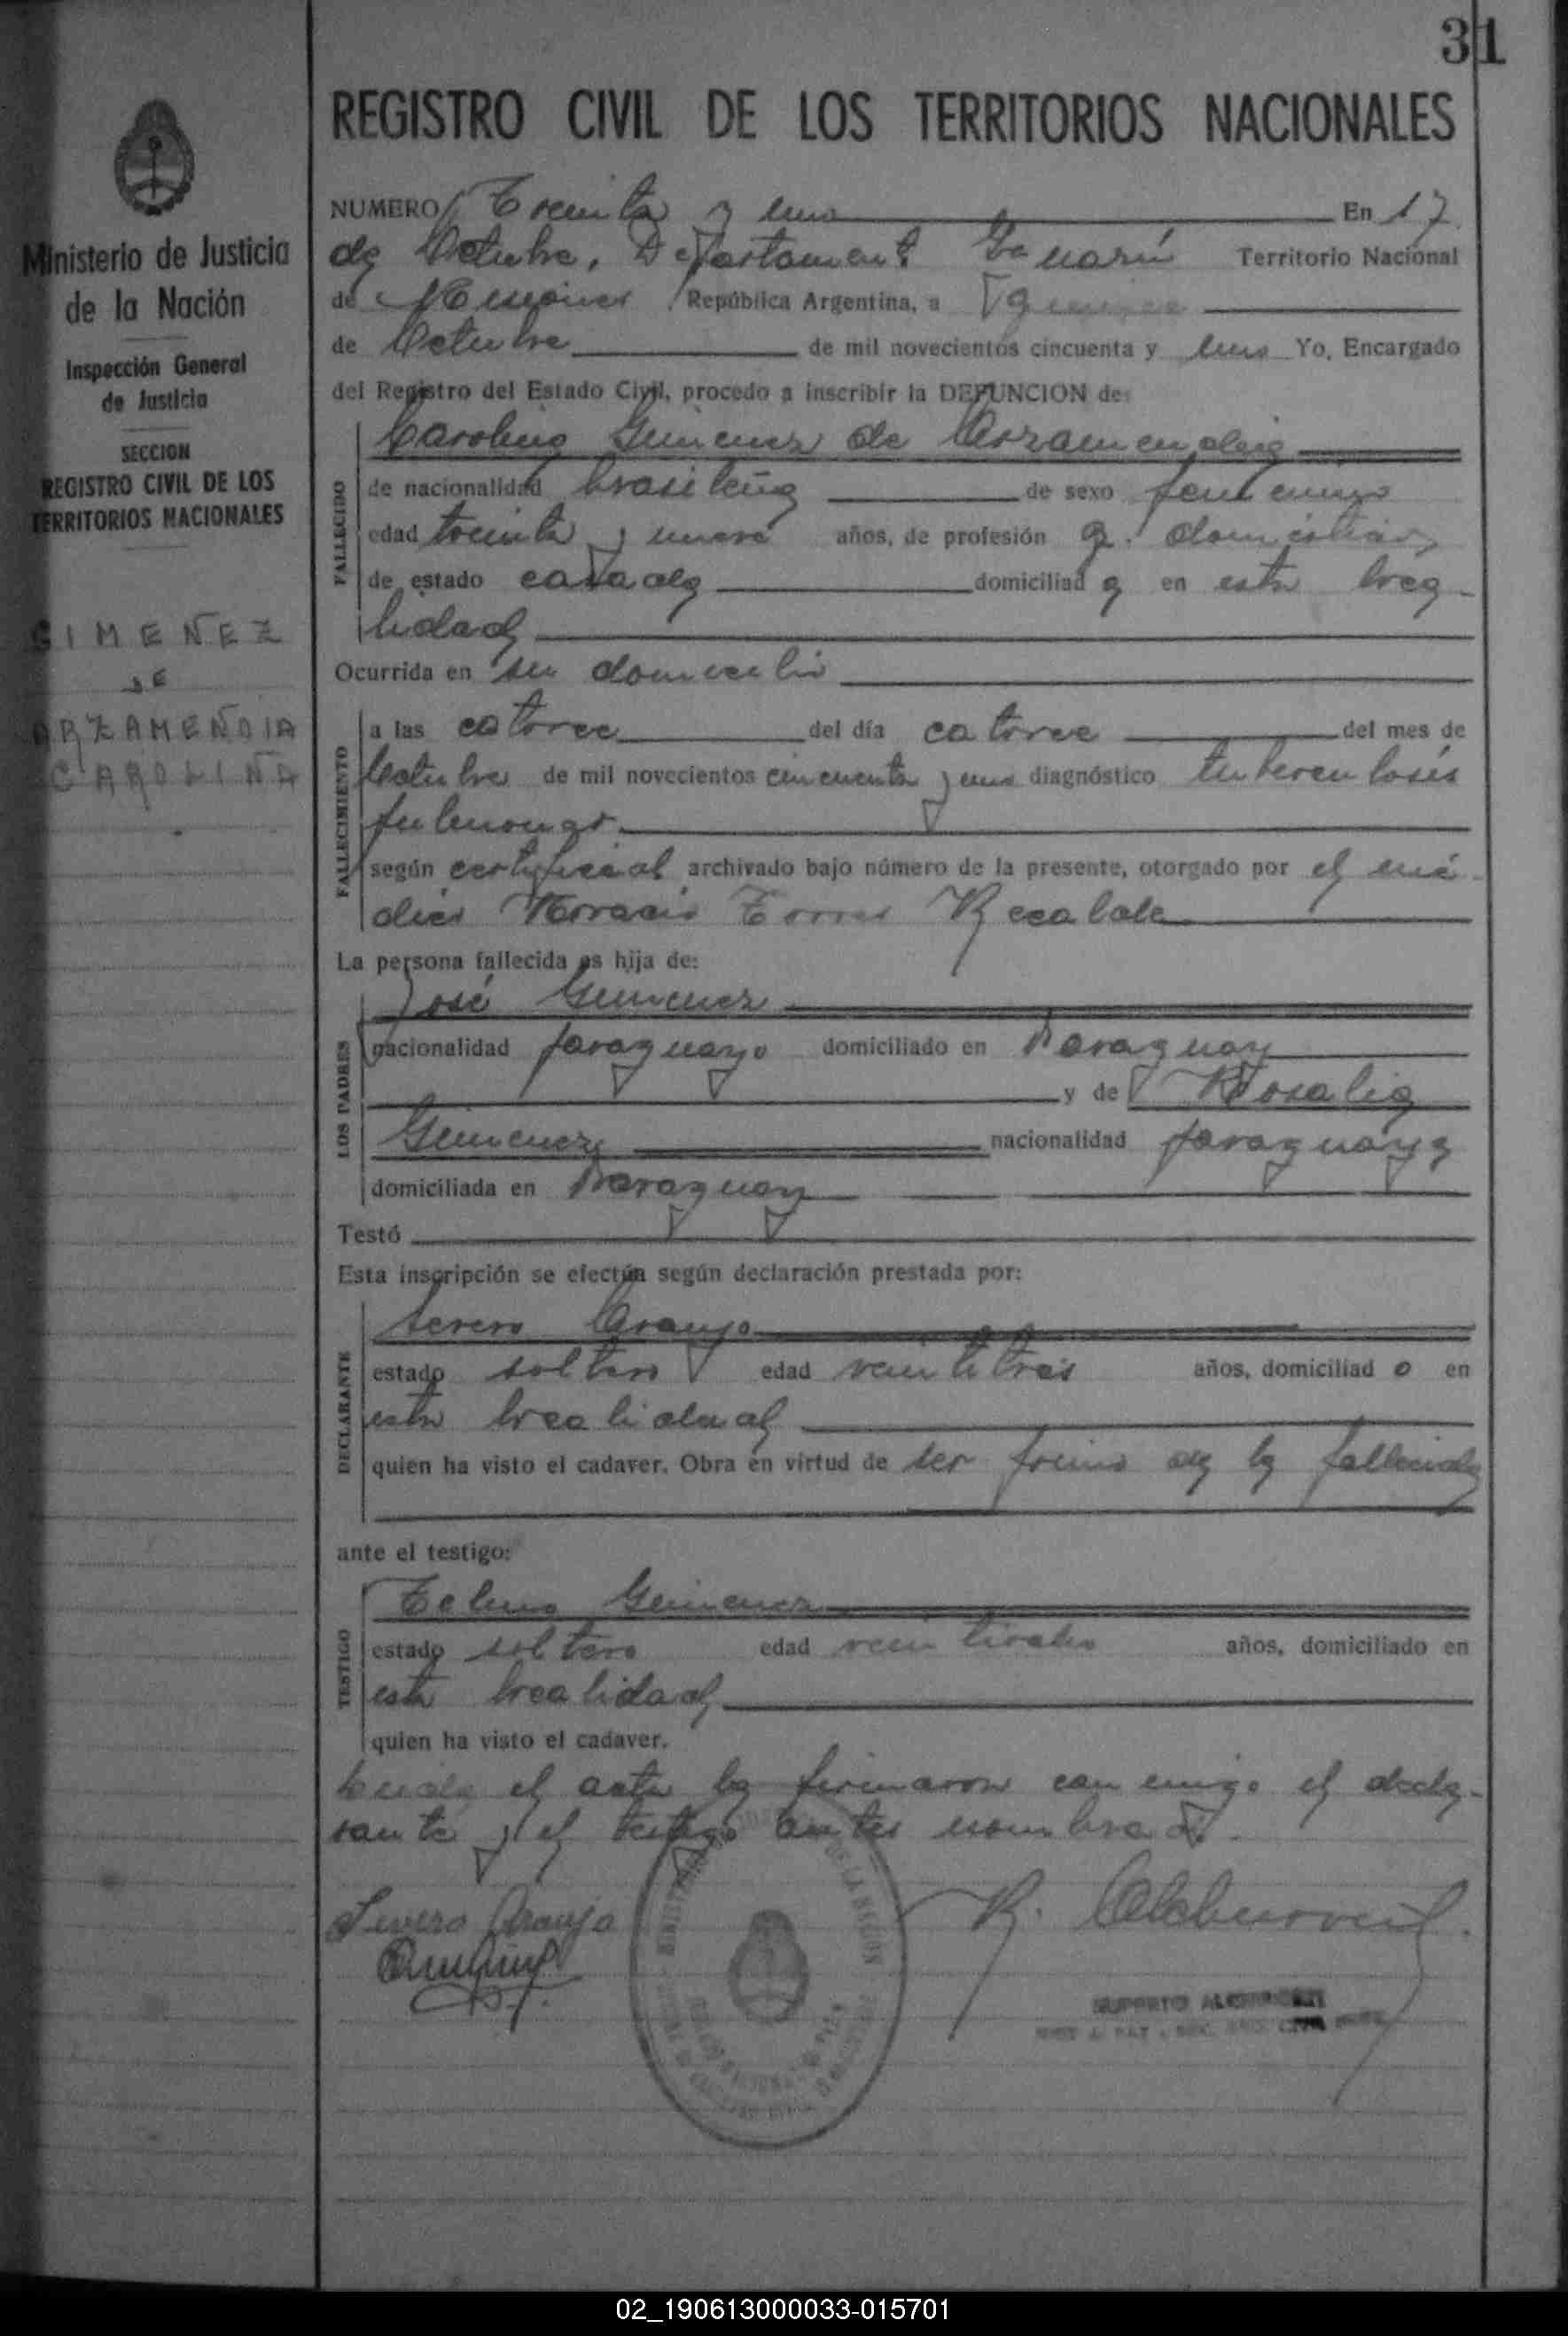 31
REGISTRO CIVIL DE LOS TERRITORIOS NACIONALES
Ministerio de Justicia
de la Nación
Inspección General
de Justicia
SECCION
REGISTRO CIVIL DE LOS
TERRITORIOS NACIONALES
GIMEÑEZ
DE
ARZAMEÑDIA
CAROLIÑA
NUMERO Treinta y uno En 17
de Octubre, Departament Territorio Nacional
de Misiones República Argentina, a
de Octubre de mil novecientos cincuenta y uno Yo, Encargado
del Registro del Estado Civil, procedo a inscribir la DEFUNCION de:
Carolina Gimenez de Arzamendia
FALLECIDO
de nacionalidad brasileña de sexo femenino
edad treinta y nueve años, de profesión q. domésticos
de estado casada domiciliad a en esta loca-
lidad
Ocurrida en su domicilio
FALLECIMIENTO
a las catorce del día catorce del mes de
Octubre de mil novecientos cincuenta y uno diagnóstico tuberculosis
pulmonar
según certificad archivado bajo número de la presente, otorgado por el mé-
dico Horacio Torres Recalde
La persona fallecida es hija de:
LOS PADRES
José Gimenez
nacionalidad paraguayo domiciliado en Paraguay
y de Rosalia
Gimenez nacionalidad paraguaya
domiciliada en Paraguay
Testó
Esta inscripción se efectúa según declaración prestada por:
DECLARANTE
Severo Araujo
estado soltero edad veintitres años, domiciliad o en
esta localidad
quien ha visto el cadaver. Obra en virtud de ser primo de la fallecida
ante el testigo:
TESTIGO
Telmo Gimenez
estado soltero edad años, domiciliado en
esta localidad
quien ha visto el cadaver.
Leida el acta la firmaron conmigo el decla-
rante y el testigo antes nombrad
Severo Araujo
02_190613000033-015701